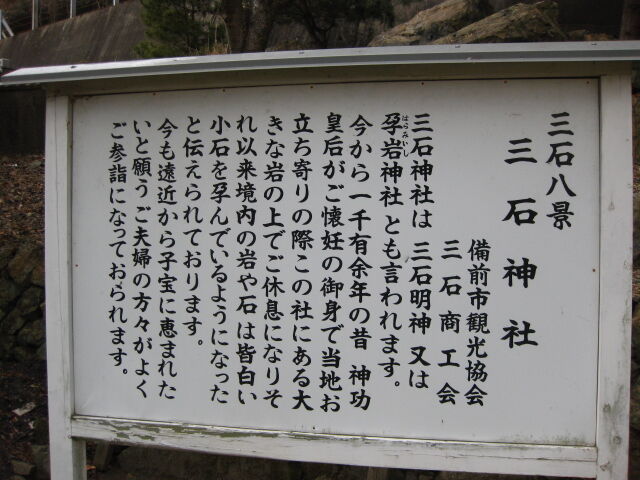 三石八景
三石神社
備前市観光協会
三石商工会
三石神社は 三石明神 又は
孕岩神社 とも言われます。
はらみいし
今から一千有余年の昔 神功
皇后がご懐妊の御身で当地お
立ち寄りの際この社にある大
きな岩の上でご休息になりそ
れ以来境内の岩や石は皆白い
小石を孕んでいるようになった
と伝えられております。
今も遠近から子宝に恵まれた
いと願うご夫婦の方々がよく
ご参詣になっておられます。